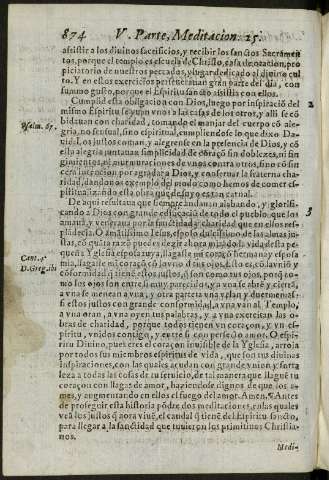 874 V. Parte, Meditacion. 25.
assistir a los diuinos sacrificios, y recibir los sanctos Sacramen
tos, porque el templo es escuela de Christo, casa de oracion, pro
piciatorio de nuestros peccados, y lugar dedicado al diuino cul
to. Y en estos exercicios perseuerauan gran parte del dia, con
summo gusto, porque el Espiritu sancto assistia con ellos.
Cumplida esta obligacion con Dios, luego por inspiració del 2
mismo Espiritu se yuan vnos a las casas de los otros, y alli se có
bidauan con charidad, tomando el manjar del cuerpo có ale-
Psalm. 67. gria, no sensual, sino espiritual, cumpliendose lo que dixo Da-
uid. Los justos coman, y alegrense en la presencia de Dios, y có
esta alegria juntauan simplicidad de coraçó sin doblezes, ni fin
gimientos, ni murmuraciones de vnos contra otros, sino có sin
cera intencion por agradar a Dios, y conseruar la fraterna cha-
ridad, dandonos exemplo del modo como hemos de comer es-
piritualizando esta obra que de suyo es tan carnal.
De aqui resultaua que siempre andauan alabando, y glorifi- 3
cando a Dios con grande edificació de todo el pueblo, que los
amaua, y veneraua por la sanctidad y charidad que en ellos res-
plandecia. O dulcissimo Iesus, esposo dulcissimo de las almas jus-
tas, có quáta razó puedes dezir ahora mirado la vida desta pe-
Cant. 4. queña Yglesia esposa tuya, llagaste mi coraçó hermana y esposa
D. Greg. ibi mia, llagaste mi coraçó có vno de tus ojos. Esto es, có la vnió y
cóformidad que tiene estos justos, que son como tus ojos, porque co-
mo los ojos son entre si muy parecidos, y a vna se abré y cierrá,
a vna se menean a vna, y otra parte, a vna velan y duermen: as-
si estos justos con grande conformidad, a vna van al Templo,
a vna oran, a vna oyen tus palabras, y a vna exercitan las o-
bras de charidad, porque todos tienen vn coraçon, y vn es-
piritu, vnidos contigo, y entre si con perfecto amor. O espi-
ritu Diuino, pues eres el coraçon inuisible de la Yglesia, arroja
por todos sus miembros espiritus de vida, que son tus diuinas
inspiraciones, con las quales acudan con grande vnion y forta
leza a todas las cosas de tu seruicio, de tal manera que llague tu
coraçon con llagas de amor, haziendose dignos de que los a-
mes, y augmentando en ellos el fuego del amor. Amen. ¶ Antes
de proseguir esta historia pódre dos meditaciones, en las quales
veá los justos que aora viué, el caudal que tiené del Espiritu sancto,
para llegar a la sanctidad que tuuieron los primitiuos Christia-
nos.
Medi-